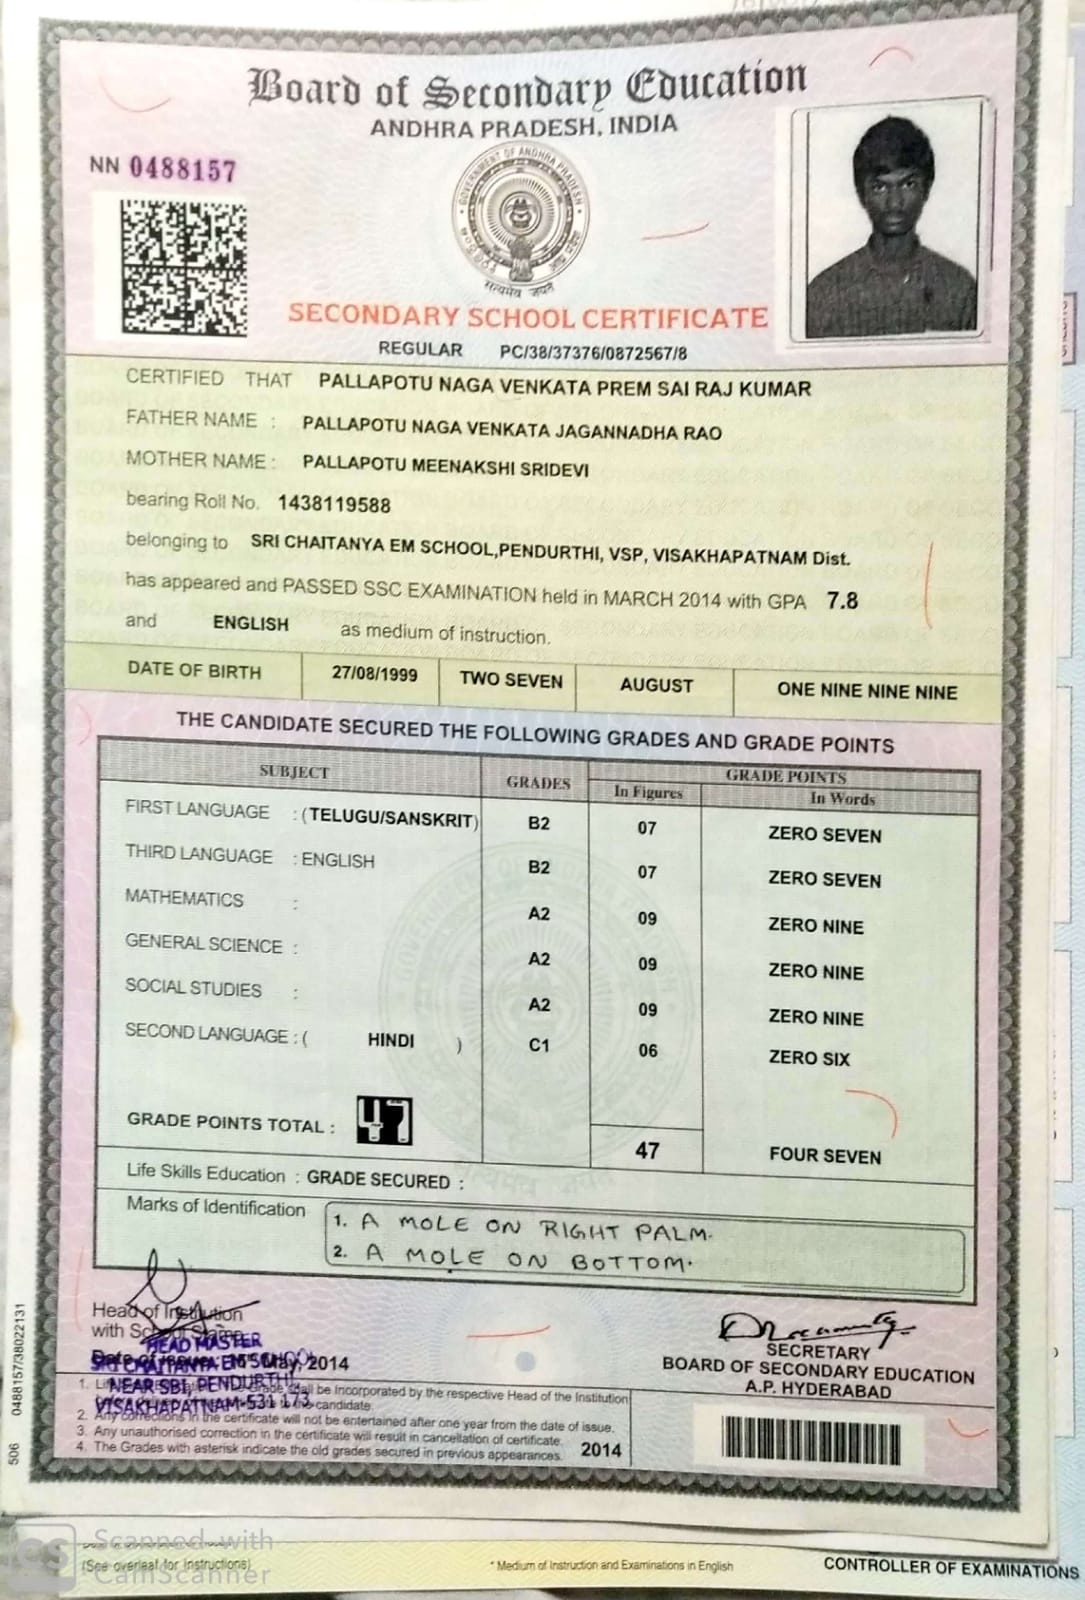 Board of Secondary Education
ANDHRA PRADESH, INDIA
NN 0488157
GOVERNMENT OF ANDHRA PRADESH
सत्यमेव जयते
SECONDARY SCHOOL CERTIFICATE
REGULAR PC/38/37376/0872567/8
CERTIFIED THAT PALLAPOTU NAGA VENKATA PREM SAI RAJ KUMAR
FATHER NAME : PALLAPOTU NAGA VENKATA JAGANNADHA RAO
MOTHER NAME : PALLAPOTU MEENAKSHI SRIDEVI
bearing Roll No. 1438119588
belonging to SRI CHAITANYA EM SCHOOL,PENDURTHI, VSP, VISAKHAPATNAM Dist.
has appeared and PASSED SSC EXAMINATION held in MARCH 2014 with GPA 7.8
and ENGLISH as medium of instruction.
DATE OF BIRTH 27/08/1999 TWO SEVEN AUGUST ONE NINE NINE NINE
THE CANDIDATE SECURED THE FOLLOWING GRADES AND GRADE POINTS
SUBJECT GRADES GRADE POINTS
In Figures In Words
FIRST LANGUAGE : (TELUGU/SANSKRIT) B2 07 ZERO SEVEN
THIRD LANGUAGE : ENGLISH B2 07 ZERO SEVEN
MATHEMATICS : A2 09 ZERO NINE
GENERAL SCIENCE : A2 09 ZERO NINE
SOCIAL STUDIES : A2 09 ZERO NINE
SECOND LANGUAGE : ( HINDI ) C1 06 ZERO SIX
GRADE POINTS TOTAL : 47 47 FOUR SEVEN
Life Skills Education : GRADE SECURED :
Marks of Identification
1. A MOLE ON RIGHT PALM.
2. A MOLE ON BOTTOM.
Head of Institution
with School Stamp
HEAD MASTER
SRI CHAITANYA EM SCHOOL
NEAR SBI, PENDURTHI
VISAKHAPATNAM-531 173
Date of issue: May, 2014
SECRETARY
BOARD OF SECONDARY EDUCATION
A.P. HYDERABAD
1. shall be incorporated by the respective Head of the Institution
candidate.
2. Any corrections in the certificate will not be entertained after one year from the date of issue.
3. Any unauthorised correction in the certificate will result in cancellation of certificate.
4. The Grades with asterisk indicate the old grades secured in previous appearances. 2014
506 0488157/38022131
Scanned with
CamScanner
(See overleaf for Instructions) * Medium of Instruction and Examinations in English CONTROLLER OF EXAMINATIONS